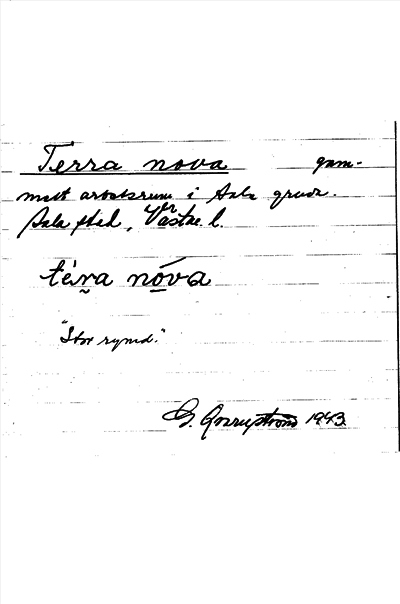 Terra nova gam-
malt arbetsrum i Sala gruva.
Sala stad, Västm. l.
téra nóva
"Stor rymd."
G. 1943.